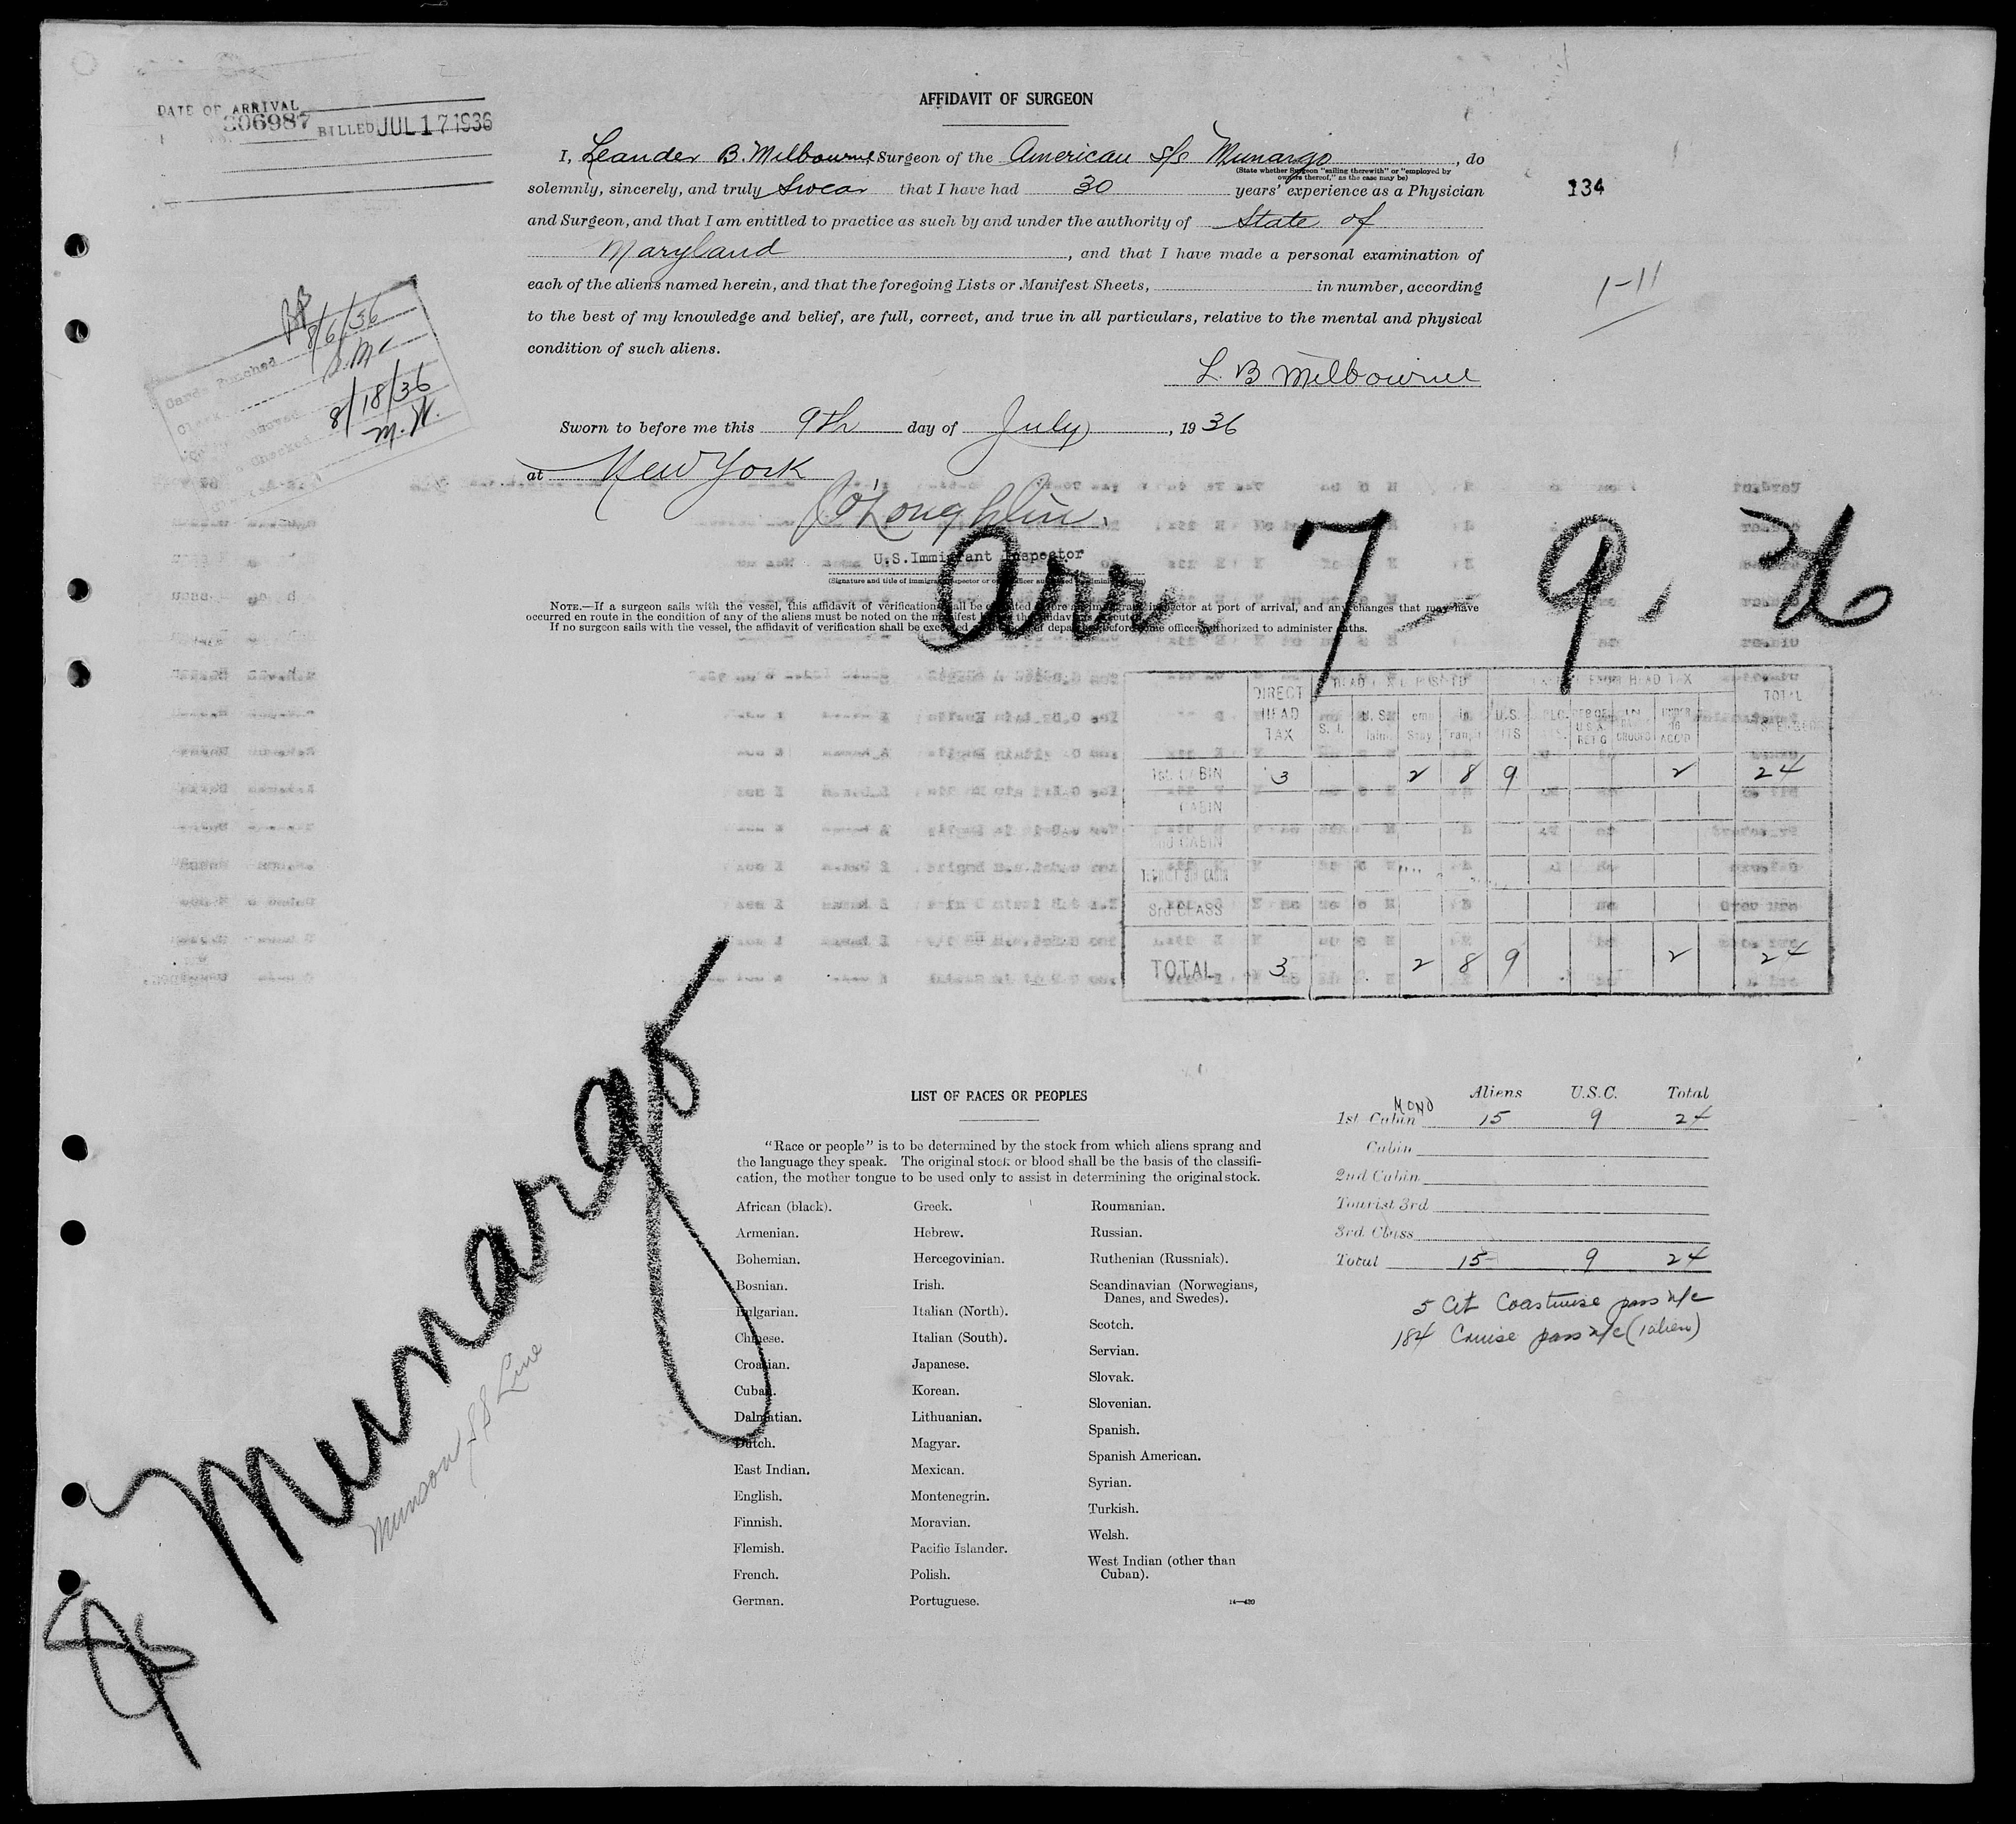 DATE OF ARRIVAL
206987 BILLED JUL 17 1936
AFFIDAVIT OF SURGEON
I, Leander B. Melbourne, Surgeon of the American S/S Munargo, do
(State whether Surgeon "sailing therewith" or "employed by
owners thereof," as the case may be)
solemnly, sincerely, and truly Swear that I have had 30 years' experience as a Physician
134
and Surgeon, and that I am entitled to practice as such by and under the authority of State of
Maryland, and that I have made a personal examination of
each of the aliens named herein, and that the foregoing Lists or Manifest Sheets, in number, according
1-11
to the best of my knowledge and belief, are full, correct, and true in all particulars, relative to the mental and physical
condition of such aliens.
L. B Melbourne
8/6/36
Cards Punched
8/18/36
M. W.
Checked
Sworn to before me this 9th day of July, 1936
at New York
O'Loughlin.
U.S. Immigrant Inspector
(Signature and title of immigrant inspector or other officer authorized to administer oaths)
Arr. 7-9-36
NOTE.—If a surgeon sails with the vessel, this affidavit of verification shall be executed before an immigrant inspector at port of arrival, and any changes that may have
occurred en route in the condition of any of the aliens must be noted on the manifest before the affidavit is executed.
If no surgeon sails with the vessel, the affidavit of verification shall be executed at the port of departure before some officer authorized to administer oaths.
DIRECT HEAD TAX
FROM HEAD TAX
TOTAL
S. I. Temp Stay In Transit U.S. CITS U.S.A. RET'G UNDER 16 ACC'D
1st CABIN 3 2 8 9 2 24
CABIN
2nd CABIN
TOURIST 3rd CABIN
3rd CLASS
TOTAL 3 2 8 9 2 24
Munargo
Munson SS Line
LIST OF RACES OR PEOPLES
"Race or people" is to be determined by the stock from which aliens sprang and
the language they speak. The original stock or blood shall be the basis of the classifi-
cation, the mother tongue to be used only to assist in determining the original stock.
African (black).
Armenian.
Bohemian.
Bosnian.
Bulgarian.
Chinese.
Croatian.
Cuban.
Dalmatian.
Dutch.
East Indian.
English.
Finnish.
Flemish.
French.
German.
Greek.
Hebrew.
Hercegovinian.
Irish.
Italian (North).
Italian (South).
Japanese.
Korean.
Lithuanian.
Magyar.
Mexican.
Montenegrin.
Moravian.
Pacific Islander.
Polish.
Portuguese.
Roumanian.
Russian.
Ruthenian (Russniak).
Scandinavian (Norwegians,
Danes, and Swedes).
Scotch.
Servian.
Slovak.
Slovenian.
Spanish.
Spanish American.
Syrian.
Turkish.
Welsh.
West Indian (other than
Cuban).
14—420
Aliens U.S.C. Total
MONO
1st Cabin 15 9 24
Cabin
2nd Cabin
Tourist 3rd
3rd Class
Total 15 9 24
5 Cit Coastwise pass n/c
184 Cruise pass n/c (1 alien)